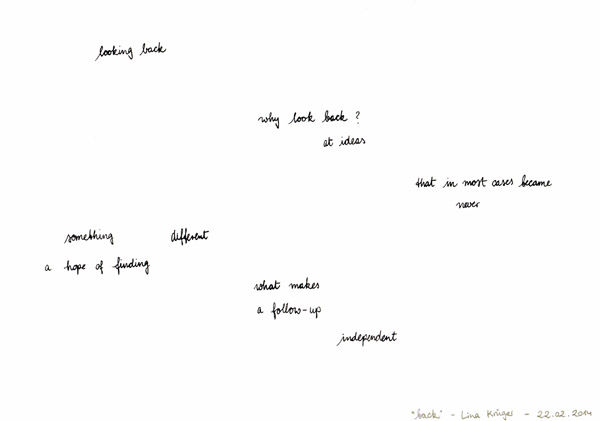 looking back
why look back ?
at ideas
that in most cases became
never
something different
a hope of finding
what makes
a follow-up
independent
"back" - Lina Krüger - 22.02.2014